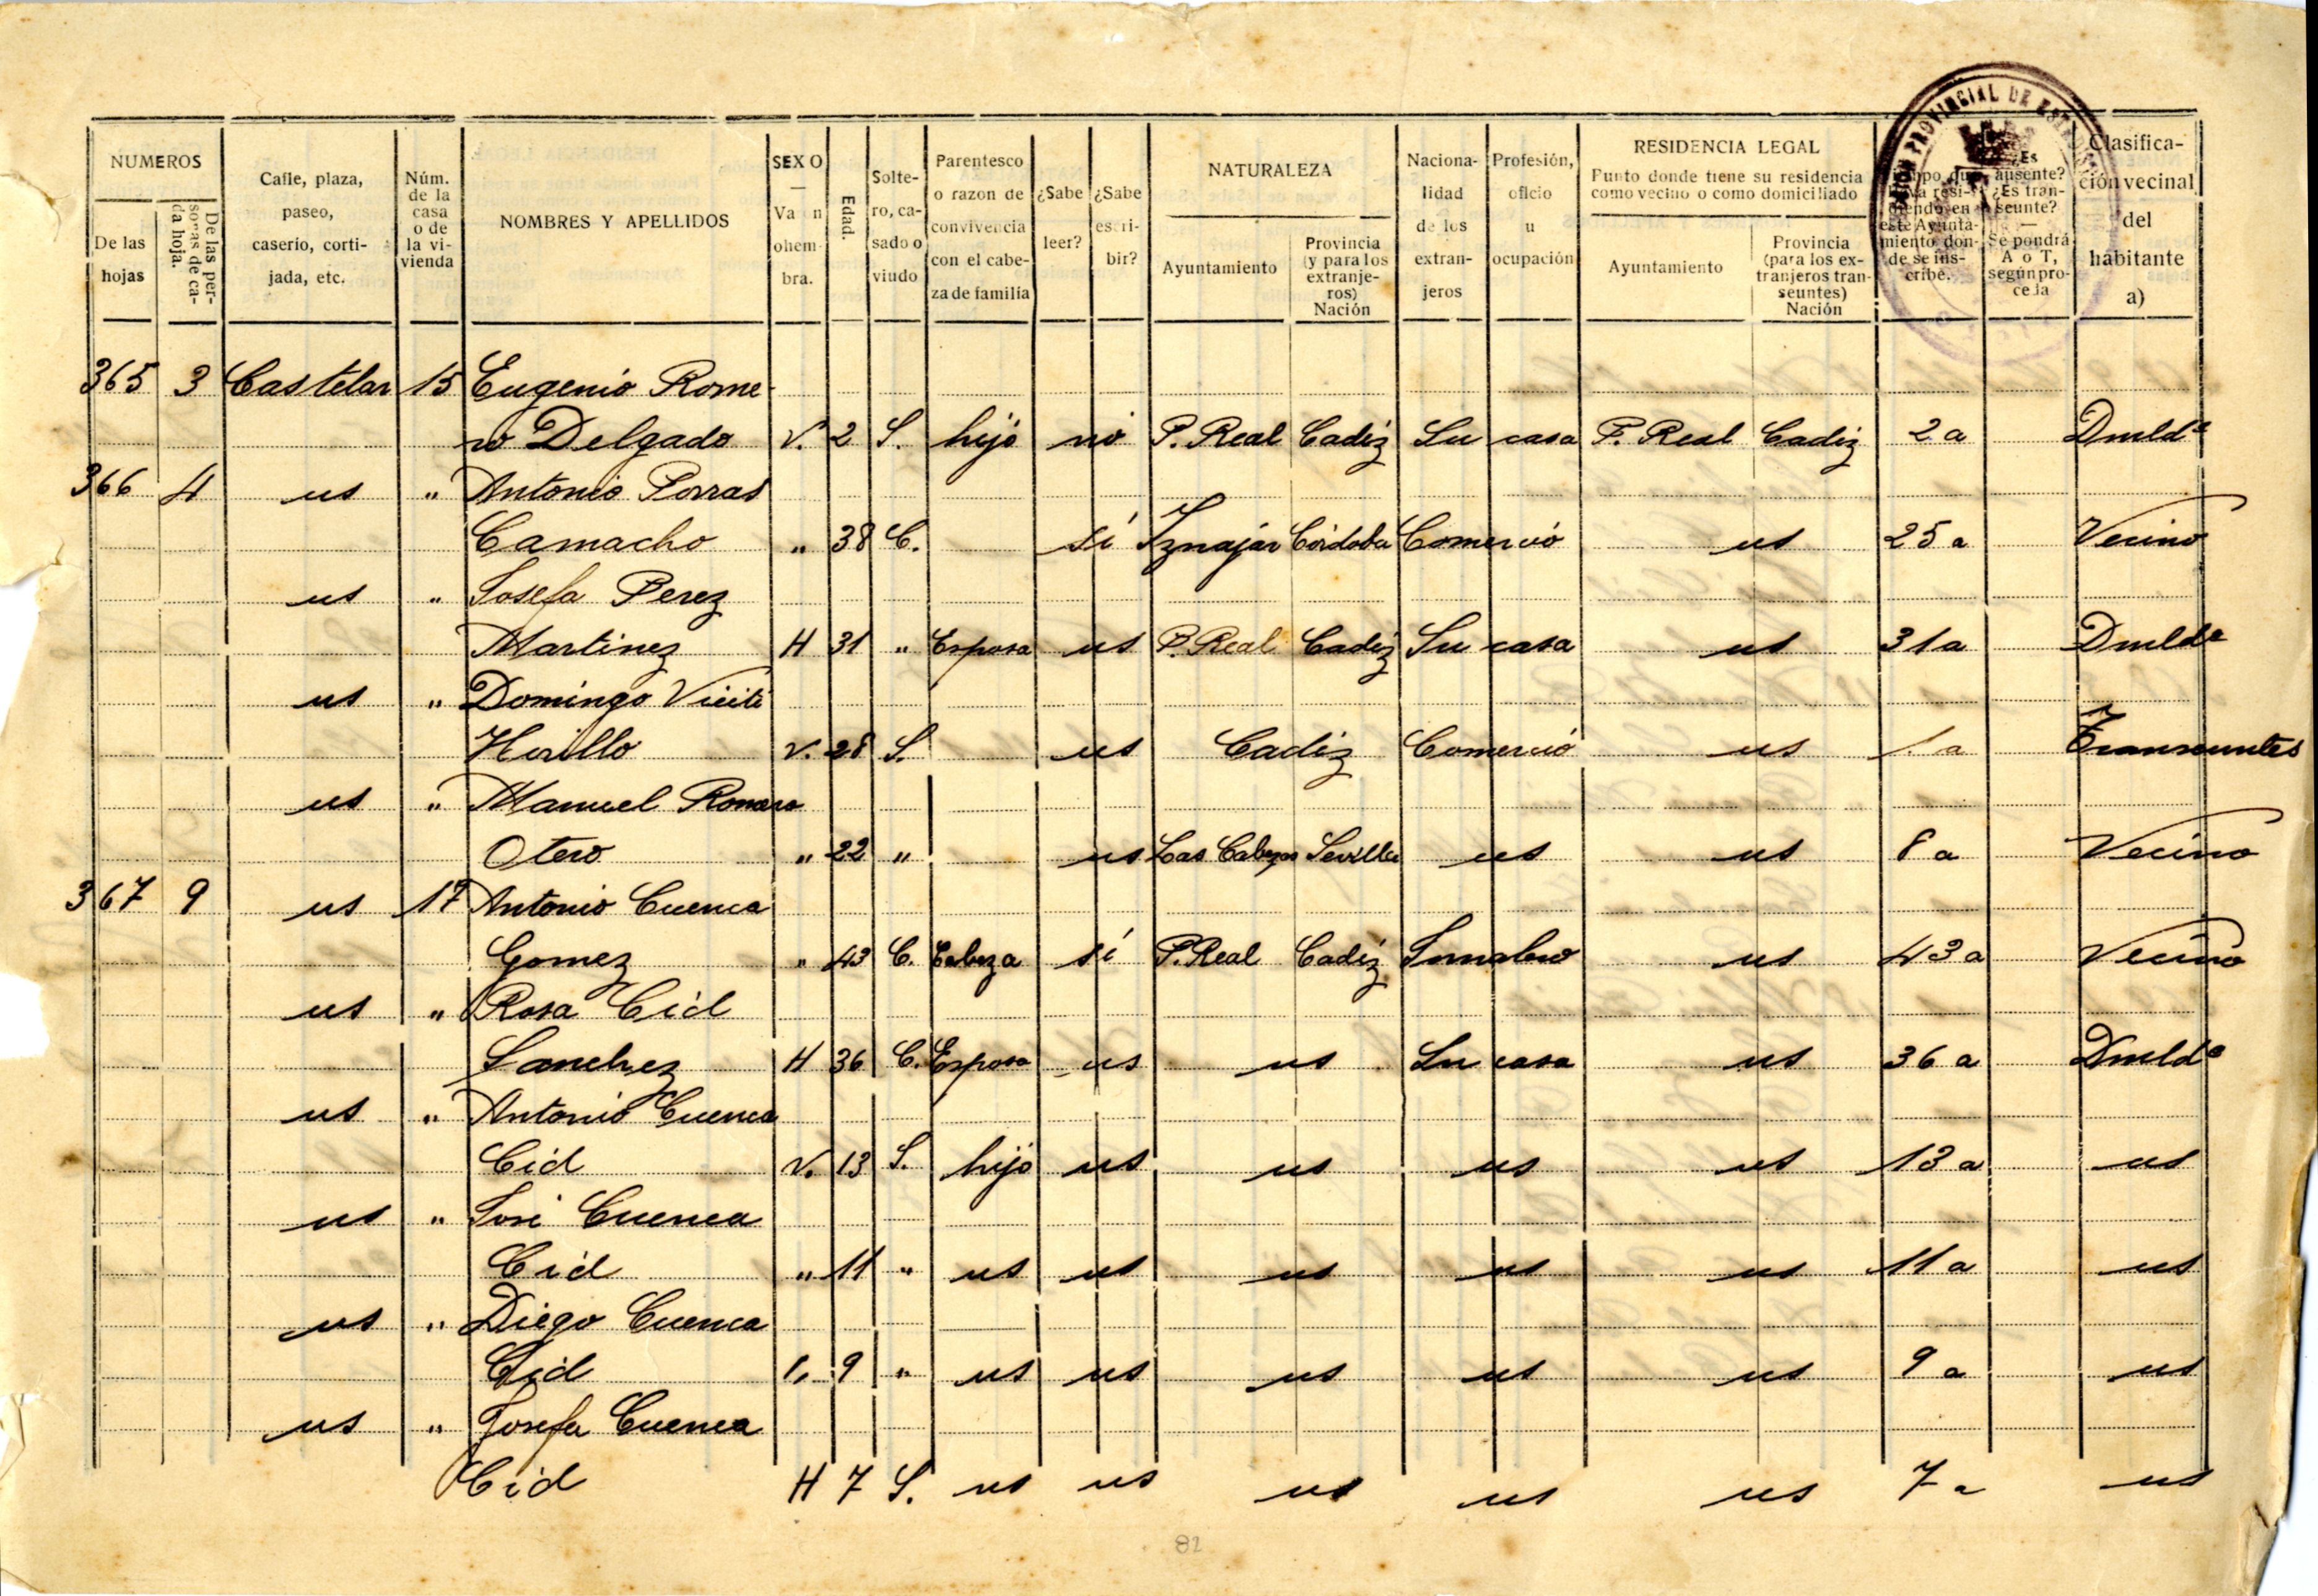 NUMEROS
De las hojas
De las personas de cada hoja.
Calle, plaza, paseo, caserío, cortijada, etc.
Núm. de la casa o de la vivienda
NOMBRES Y APELLIDOS
SEXO — Va n ohembra.
Edad.
Soltero, casado o viudo
Parentesco o razon de convivencia con el cabeza de familia
¿Sabe leer?
¿Sabe escribir?
NATURALEZA
Ayuntamiento
Provincia (y para los extranjeros) Nación
Nacionalidad de los extranjeros
Profesión, oficio u ocupación
RESIDENCIA LEGAL
Punto donde tiene su residencia como vecino o como domiciliado
Ayuntamiento
Provincia (para los extranjeros transeuntes) Nación
este Ayuntamiento donde se inscribe.
¿Es ausente? ¿Es transeunte? — Se pondrá A o T, según proceda
Clasificación vecinal del habitante a)
PROVINCIAL DE
365 3 Castelar 15 Eugenio Rome-
ro Delgado V. 2 S. hijo no P. Real Cadiz Su casa P. Real Cadiz 2 a Dmldº
366 4 us " Antonio Porras
Camacho " 38 C. sí Iznajar Córdoba Comercio us 25 a Vecino
us " Josefa Perez
Martinez H 31 " Esposa us P. Real Cadiz Su casa us 31 a Dmldª
us " Domingo
V. 28 S. us Cadiz Comercio us 1 a Transeuntes
us " Manuel Romero
Otero " 22 " us Las Cabezas Sevilla us us 8 a Vecino
367 9 us 17 Antonio Cuenca
Gomez " 43 C. Cabeza sí P. Real Cadiz us 43 a Vecino
us " Rosa Cid
Sanchez H 36 C. Esposa us us Su casa us 36 a Dmldª
us " Antonio Cuenca
Cid V. 13 S. hijo us us us us 13 a us
us " José Cuenca
Cid " 11 " us us us us us 11 a us
us " Diego Cuenca
Cid " 9 " us us us us us 9 a us
us " Josefa Cuenca
Cid H 7 S. us us us us us 7 a us
82